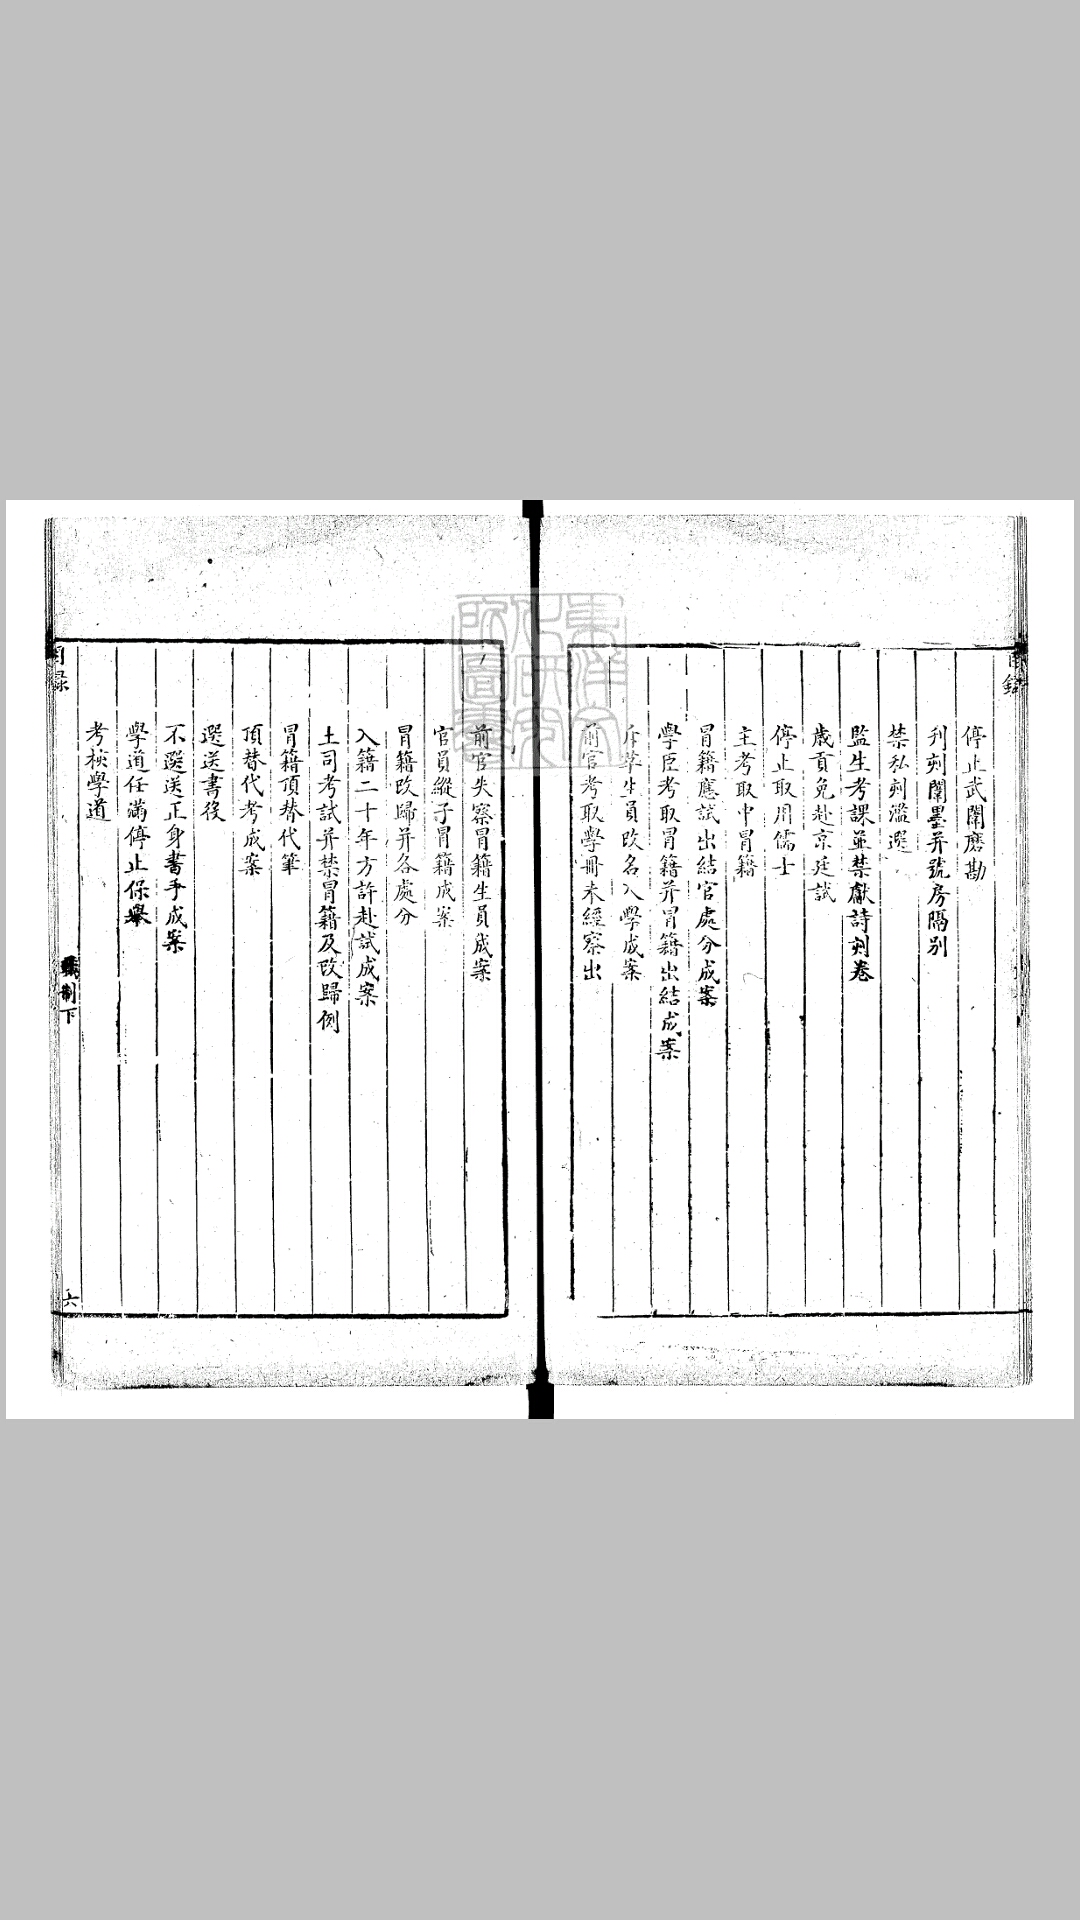 目錄
停止武闈磨勘
刋刻闈墨并號房隔别
禁私刻濫選
監生考課並禁獻詩刻卷
歲貢免赴京廷試
停止取用儒士
主考取中冒籍
冒籍應試出結官處分成案
學臣考取冒籍并冒籍出結成案
斥革生員改名入學成案
前官考取學冊未經察出
前官失察冒籍生員成案
官員縱子冒籍成案
冒籍改歸并各處分
入籍二十年方許赴試成案
土司考試并禁冒籍及改歸例
冒籍頂替代筆
頂替代考成案
選送書役
不選送正身書手成案
學道任滿停止保舉
考核學道
目錄
制下
六